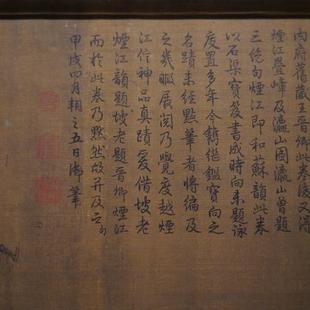 内府舊藏王晉卿此卷後又得
煙江疊嶂及瀛山圖瀛山曾題
三絶句煙江即和蘇韻此卷
以石渠寶笈書成時向未題詠
庋置多年今雋繼鑑寶向之
名蹟未經點筆者將編及
之幾暇展閱乃覺度越煙
江信神品真蹟爰借坡老
煙江韻題坡老題晉卿煙江
而於此卷乃默然故并及之
甲戌四月朔之五日御筆